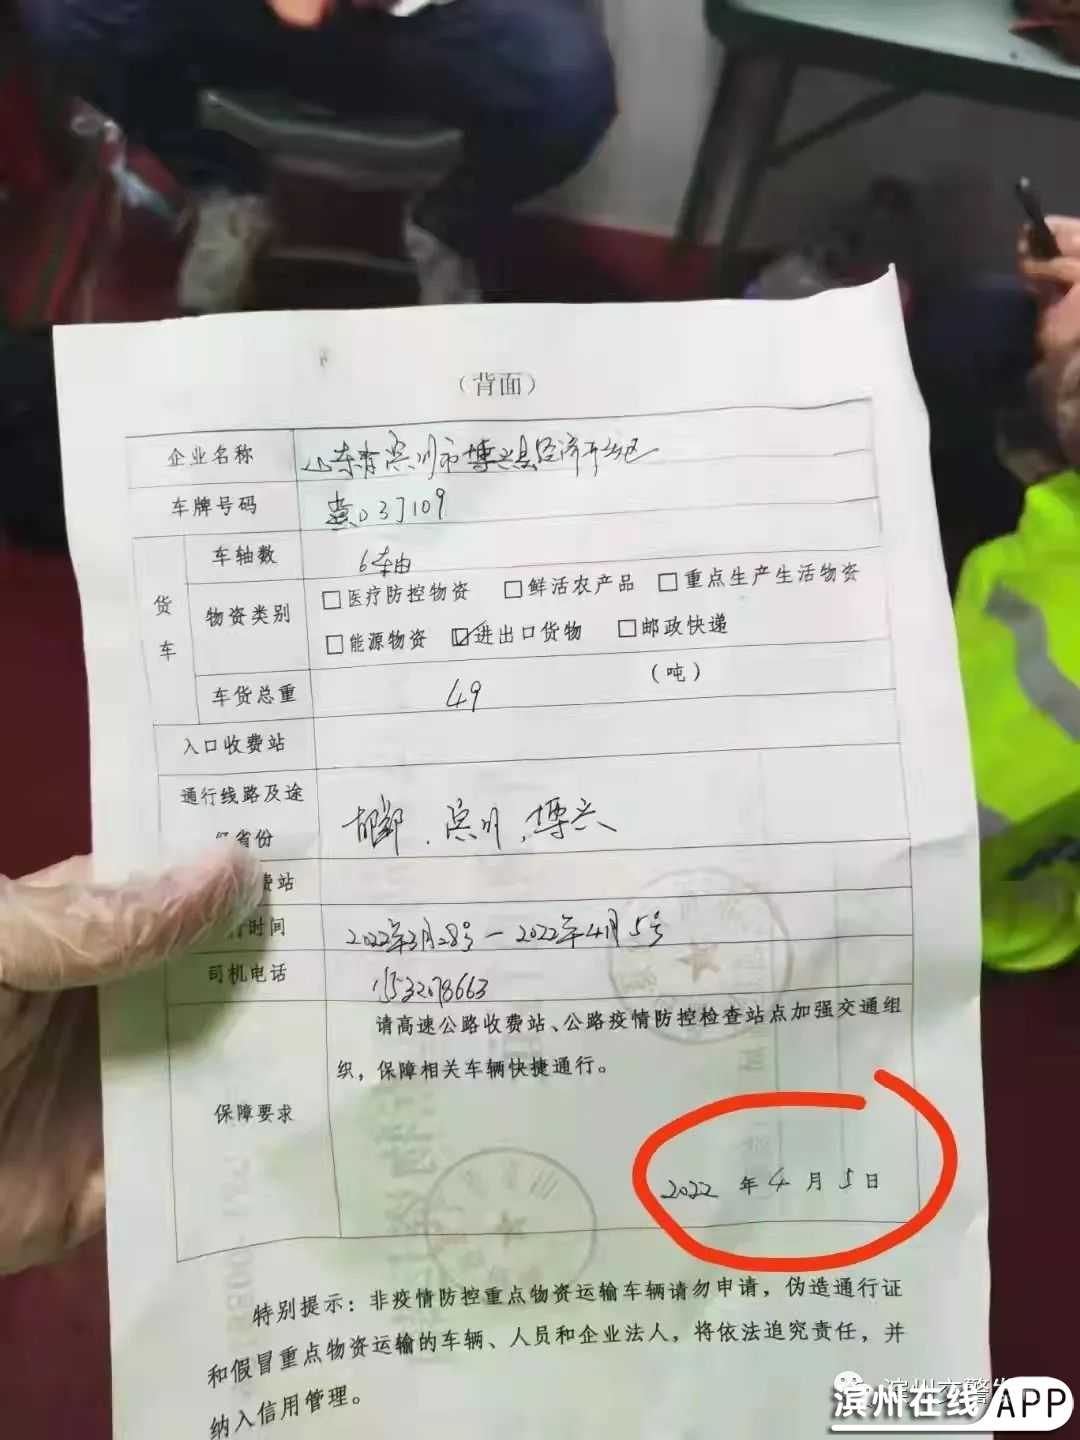 （背面）
企业名称 山东省滨州市博兴县经济开发区
车牌号码 冀D37109
货车
车轴数 6轴
物资类别 □医疗防控物资 □鲜活农产品 □重点生产生活物资
□能源物资 ☑进出口货物 □邮政快递
车货总重 49 （吨）
入口收费站
通行线路及途
省份 邯郸、滨州、博兴
费站
时间 2022年3月28号－2022年4月5号
司机电话
请高速公路收费站、公路疫情防控检查站点加强交通组
织，保障相关车辆快捷通行。
保障要求
2022 年 4 月 5 日
特别提示：非疫情防控重点物资运输车辆请勿申请，伪造通行证
和假冒重点物资运输的车辆、人员和企业法人，将依法追究责任，并
纳入信用管理。
滨州在线 APP